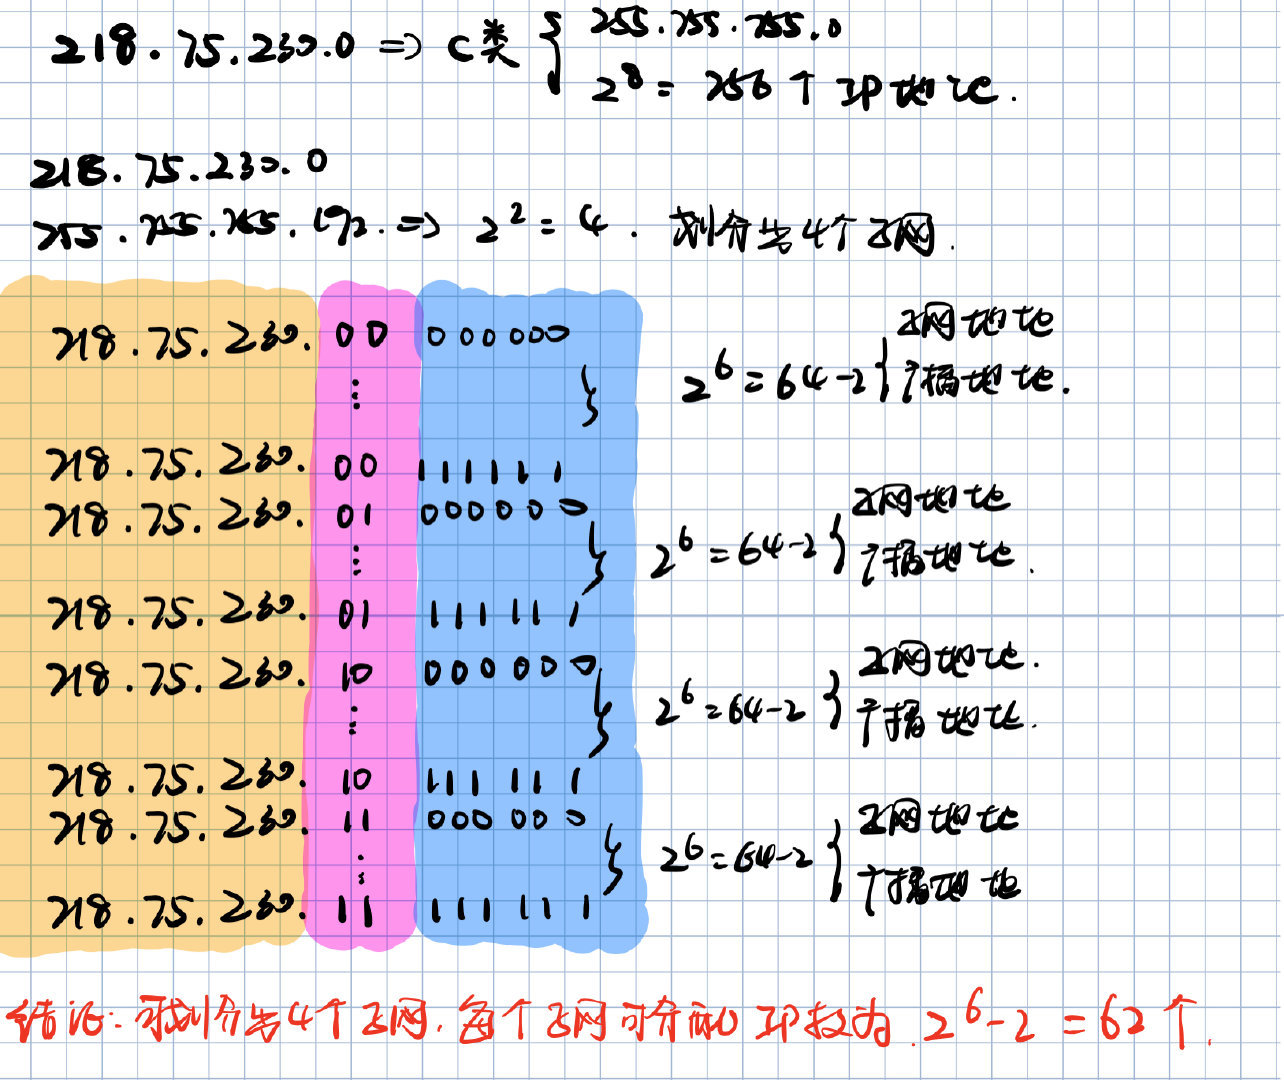 218.75.230.0 => C类 { 255.255.255.0
2^8 = 256个IP地址.
218.75.230.0
255.255.255.192. => 2^2 = 4. 划分出4个子网.
218.75.230. 00 000000
⋮ } 2^6 = 64-2 { 子网地址
广播地址.
218.75.230. 00 111111
218.75.230. 01 000000
⋮ } 2^6 = 64-2 } 子网地址
广播地址.
218.75.230. 01 111111
218.75.230. 10 000000
⋮ } 2^6 = 64-2 } 子网地址.
广播地址.
218.75.230. 10 111111
218.75.230. 11 000000
⋮ } 2^6 = 64-2 { 子网地址
广播地址
218.75.230. 11 111111
结论: 可划分出4个子网, 每个子网可分配IP数为 2^6-2 = 62个.